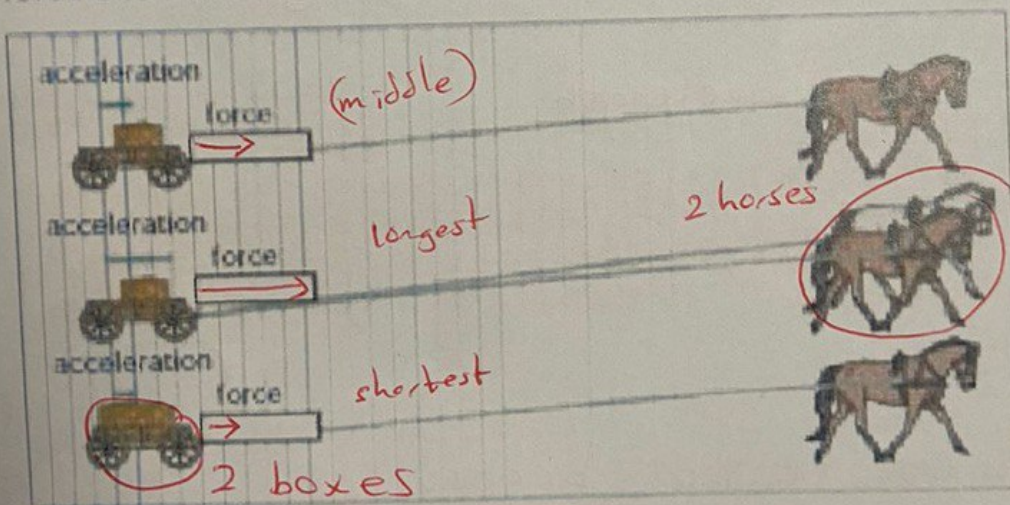 acceleration
force
(middle)
acceleration
force
longest
2 horses
acceleration
force
shortest
2 boxes